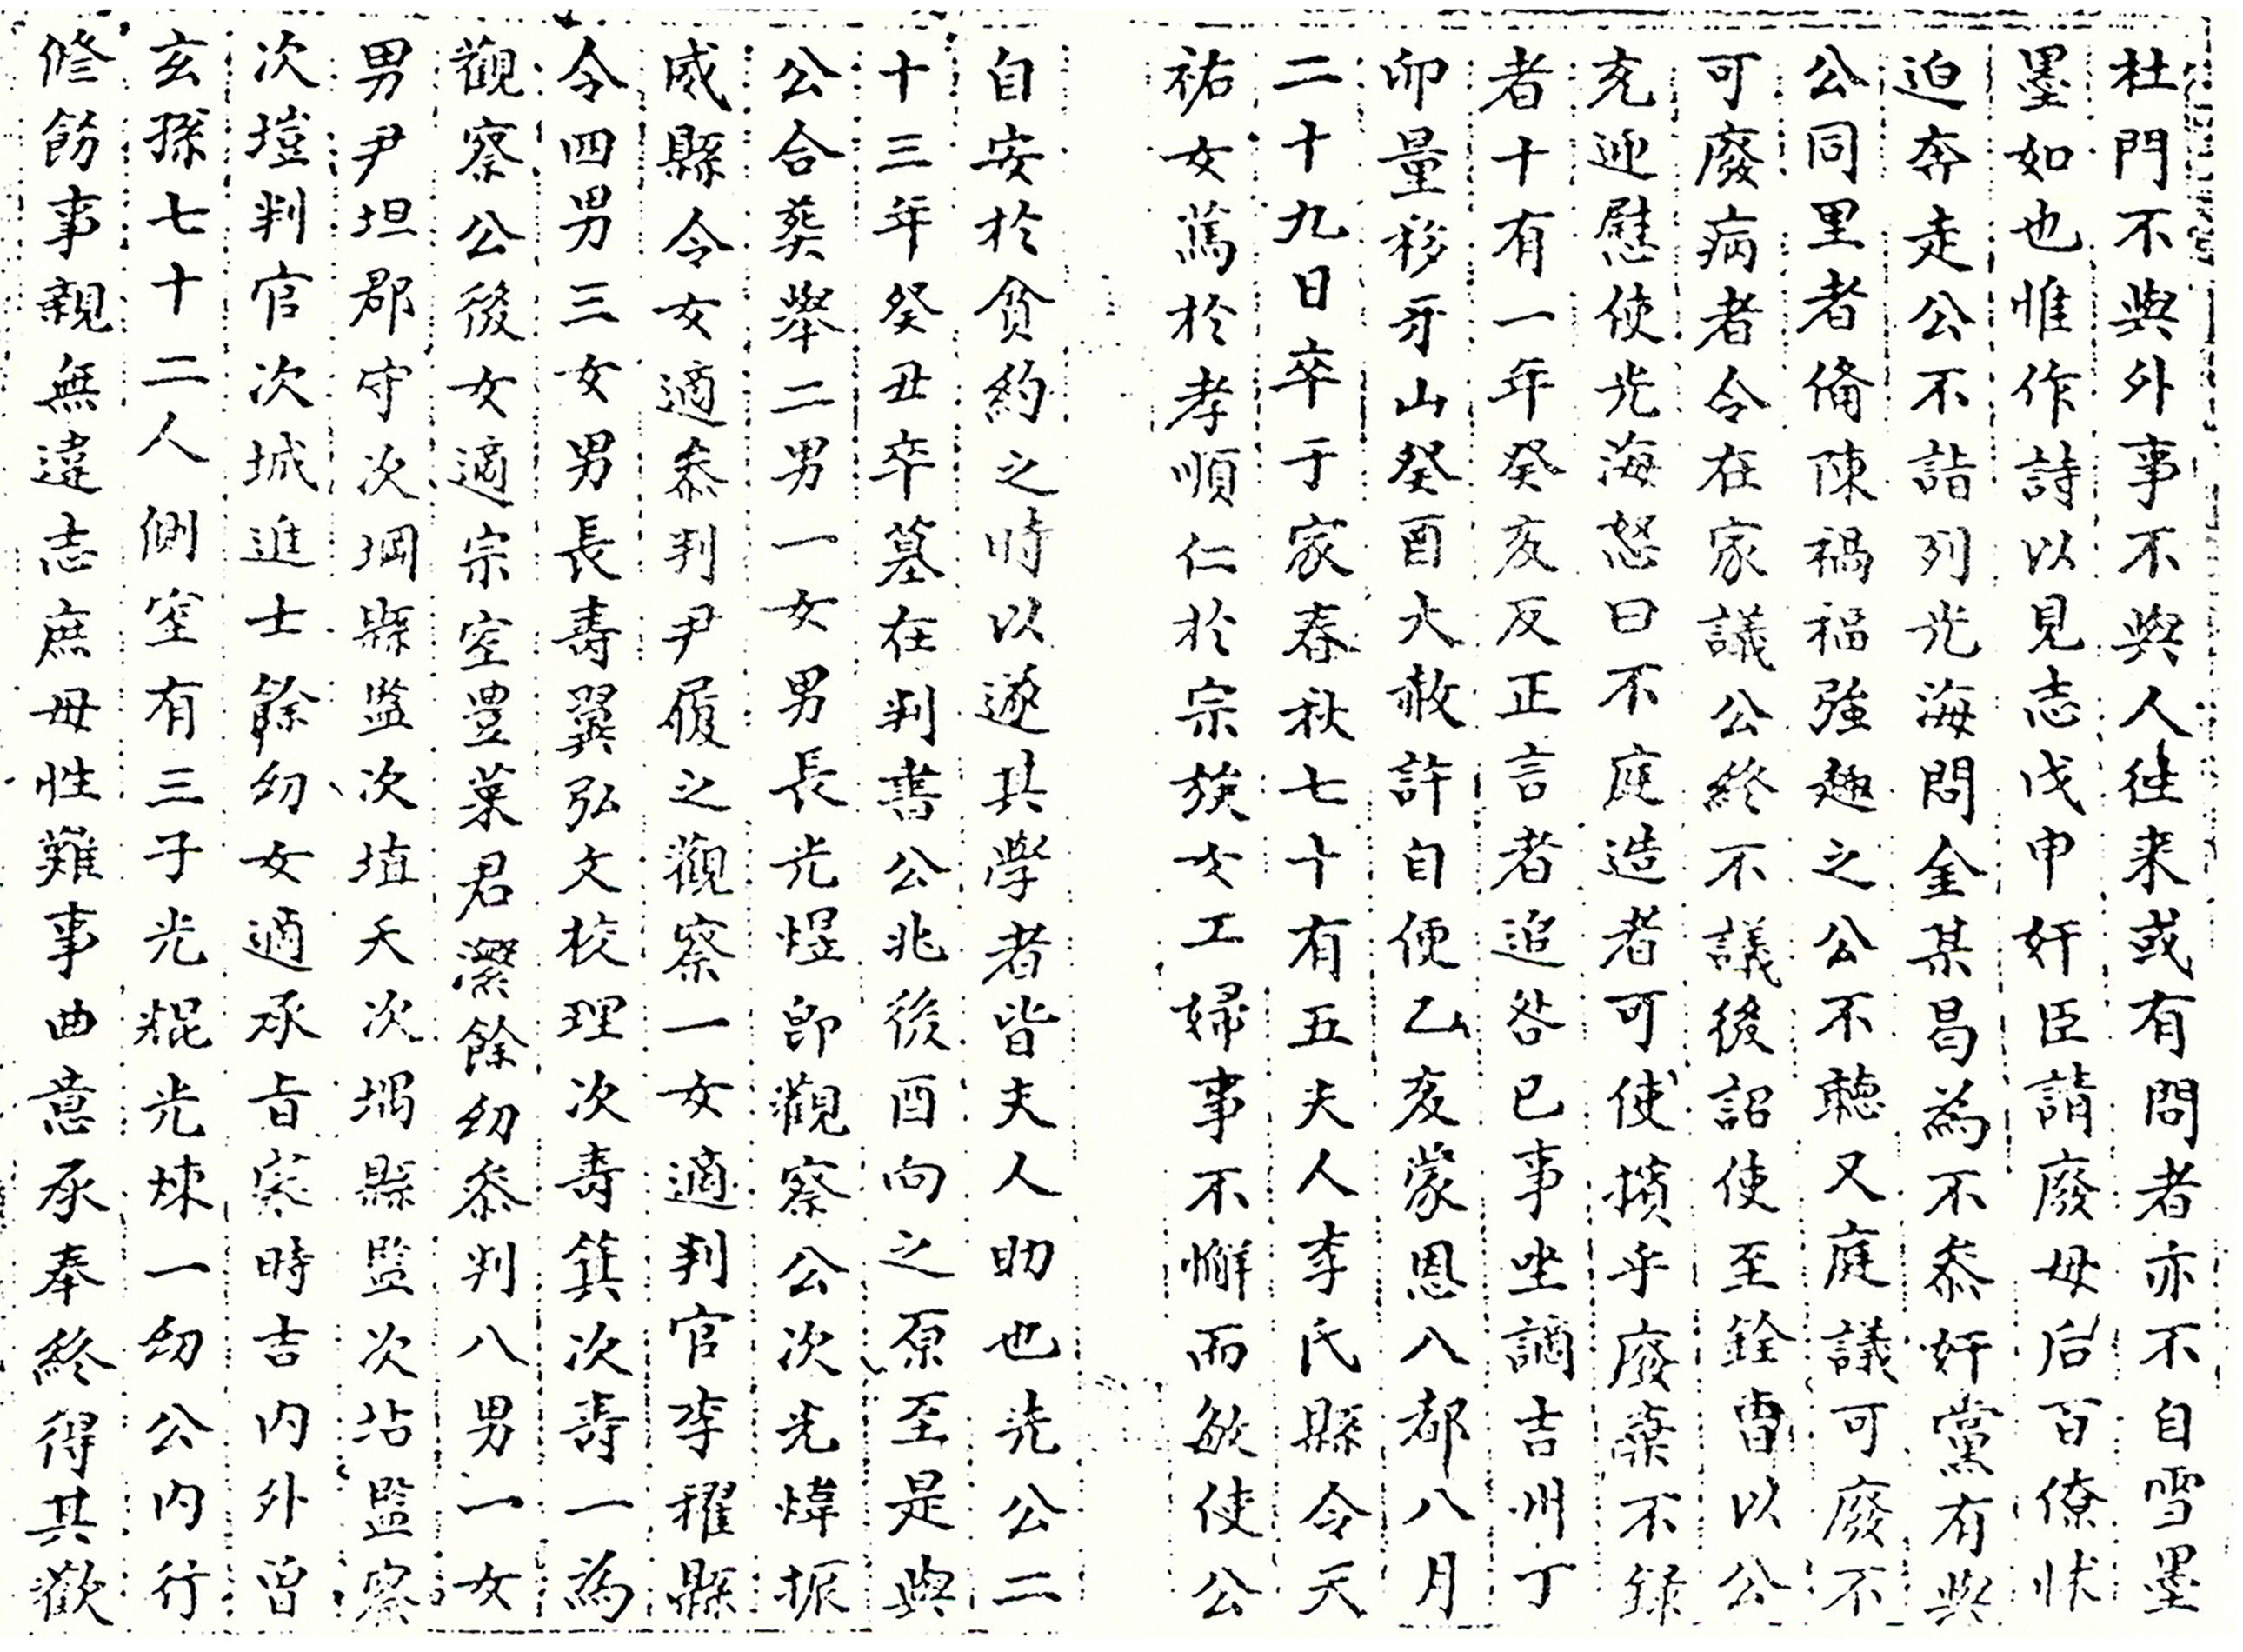 杜門不與外事不與人徃来或有問者亦不自雪墨
墨如也惟作詩以見志戊申奸臣請廢母后百僚怵
迫奔走公不詣列光海問金某曷為不叅奸黨有與
公同里者俻陳禍福強趣之公不聽又庭議可廢不
可廢病者令在家議公終不議後詔使至銓曹以公
充迎慰使光海怒曰不庭造者可使擯乎廢棄不錄
者十有一年癸亥反正言者追咎已事坐謫吉州丁
卯量移牙山癸酉大赦許自便乙亥蒙恩八都八月
二十九日卒于家春秋七十有五夫人李氏縣令天
祐女篤於孝順仁於宗族女工婦事不懈而敏使公
自安於貧約之時以遂其學者皆夫人助也先公二
十三年癸丑卒墓在判書公兆後酉向之原至是與
公合葬舉二男一女男長光煜卽觀察公次光煒振
威縣令女適叅判尹履之觀察一女適判官李䆁縣
令四男三女男長壽翼弘文校理次壽箕次壽一為
觀察公後女適宗室豊萊君濚餘幼叅判八男一女
男尹坦郡守次堈縣監次埴夭次堨縣監次坫監察
次塏判官次城進士餘幼女適承旨蔡時吉内外曾
玄孫七十二人側室有三子光焜光㷣一幼公内行
修飭事親無違志庶母性難事曲意承奉終得其歡